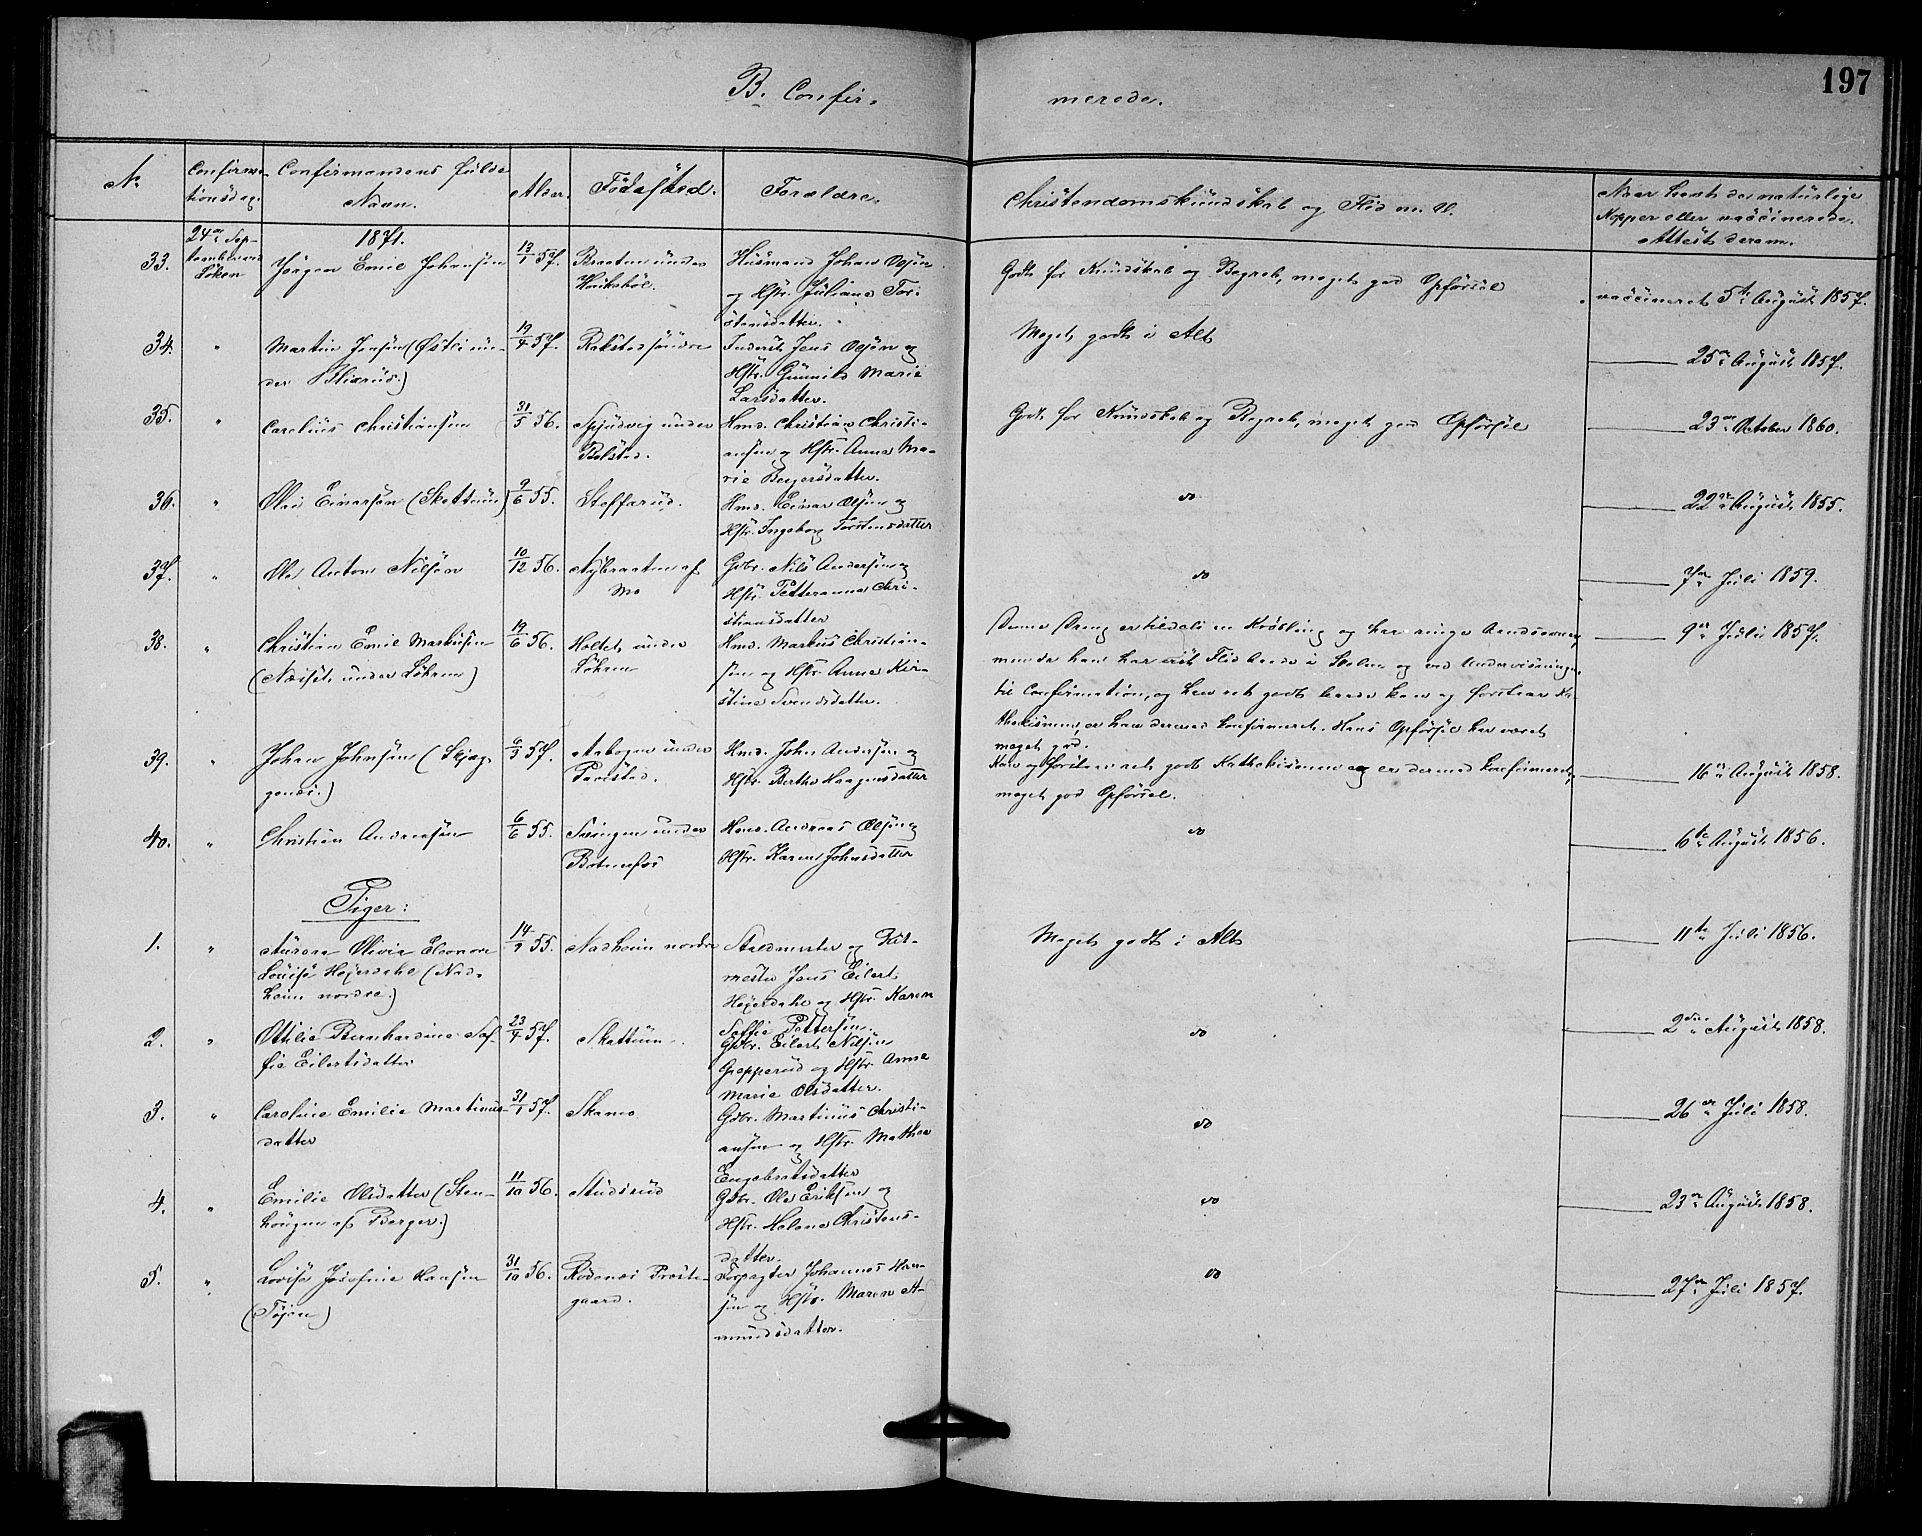 197
B. Confir-
merede.
No
Confirma-
tionsdag.
Confirmandens fulde
Navn.
Alder.
Fødested.
Forældre.
Christendomskundskab og Flid m. V.
Naar havt de naturlige
Kopper eller vaccinerede.
Attest derom.
24de Sep-
tember ved
Løken
1871.
33. Jørgen Emil Johansen 13/1 57. Braaten under
Husmand Johan Olsøn
og Hstr. Juliane Tor-
stensdatter.
Godt for Kundskab og Begreb, meget god Opførsel
vaccineret 5te August 1857.
34. " Martin Jensøn (Østli un-
der Blixrud.)
19/4 57. Rakstad søndre
Inderst Jens Olsøn og
Hstr. Gunnild Marie
Larsdatter.
Meget godt i Alt
25de August 1857.
35. " Carelius Christiansen 31/5 56. Spjudvig under
Bolstad.
Hmd. Christian Christi-
ansen og Hstr. Anne Ma-
rie Beyersdatter.
Godt for Kundskab og Begreb, meget god Opførsel
23de October 1860.
36. " Olai Einarsøn (Skattum) 9/6 55. Stefferud.
Hmd. Einar Olsøn og
Hstr. Ingeborg Torstensdatter
do
22de August 1855.
37. " Ole Anton Nilsøn 10/12 56. Nybraaten af
Mo
Gdbr. Nils Andersøn og
Hstr. Petteranna Chri-
stiansdatter
do
7de Juli 1859.
38. " Christian Emil Markusen
(Næsset under Løkren)
19/6 56. Holtet under
Løkren
Hmd. Markus Christian-
sen og Hstr. Anna Kir-
stine Svendsdatter.
Denne Dreng er tildels en Krøbling og har ringe Aandsevner,
men da han har vist Flid baade i Skolen og ved Undervisningen
til Confirmation, og han ret godt baade kan og forstaar Ka-
thekismen, er han dermed konfirmeret. Hans Opførsel har været
meget god.
9de Juli 1857.
39. " Johan Johnsøn (Skjæg-
genæs.)
6/3 57. Aabogen under
Hmd. John Andersøn og
Hstr. Berthe Haagensdatter
Kan og forstaar ret godt Kathekismen og er dermed konfirmeret,
meget god Opførsel.
16de August 1858.
40. " Christian Andreasøn 6/6 55. Svingen under
Botnerfos
Hmd. Andreas Olsøn og
Hstr. Karen Johnsdatter
do
6te August 1856.
Piger:
1. " Aurora Olivia Eleonore
Louise Heyerdahl (Nad-
heim nordre.)
14/9 55. Nadheim nordre
Staldmester og Fut-
mester Jens Eilert
Heyerdahl og Hstr. Karen
Soffie Pettersøn.
Meget godt i Alt
11te Juli 1856.
2. " Ottilie Bernhardine So-
fie Eilertsdatter
23/4 57. Skattum.
Gdbr. Eilert Nilsøn
Grepperud og Hstr. Anne
Marie Olsdatter.
do
2den August 1858.
3. " Caroline Emilie Martinus-
datter
31/1 57. Skamo
Gdbr. Martinus Christi-
ansen og Hstr. Mathea
Engebretsdatter
do
26de Juli 1858.
4. " Emilie Olsdatter (Sten-
haugen af Berger.)
11/10 56. Studsrud
Gdbr. Ole Eriksen og
Hstr. Helene Christens-
datter.
do
23de August 1858.
5. " Lovise Josefine Hansen
(Tøien)
31/10 56. Rødenæs Præste-
gaard.
Forpagter Johannes Han-
sen og Hstr. Maren A-
mundsdatter.
do
27de Juli 1857.